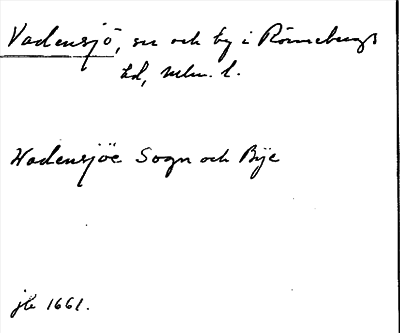 Vadensjö, sn och by i Rönnebergs
hd, Mlm. l.
Wadensjöe Sogn och Bÿe
jb 1661.